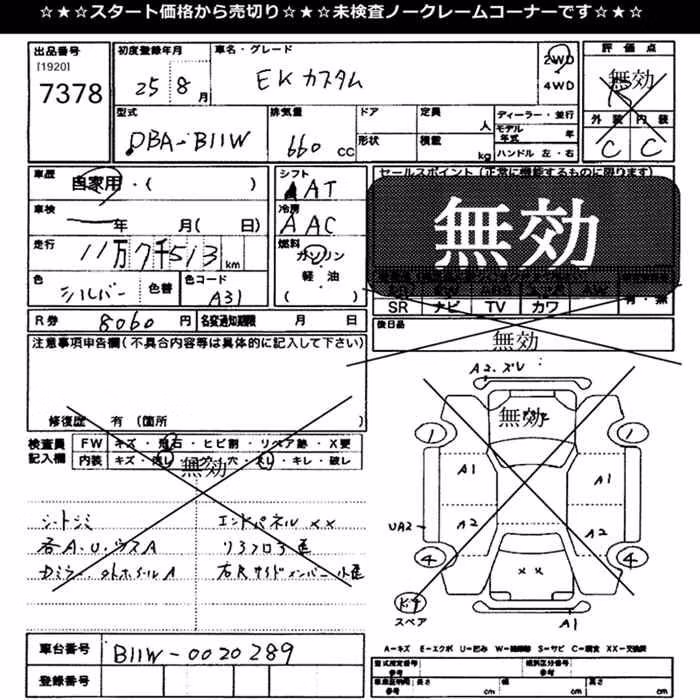 ☆★☆★スタート価格から売切り☆★☆★未検査ノークレームコーナーです☆★☆★
出品番号
[1920]
7378
初度登録年月
25 8月
車名・グレード
EKカスタム
2WD
4WD
評価点
無効
外装 内装
C C
型式
DBA-B11W
排気量
660 cc
ドア
形状
定員
人
積載
kg
ディーラー・並行
モデル年式 年
ハンドル 左・右
車歴
自家用・( )
車検
年 月( 日)
走行
11万7千513 km
色
シルバー
色替
色コード
A31
シフト
AT
冷房
AAC
燃料
ガソリン
軽・油
( )
セールスポイント(正常に機能するものに限ります)
無効
SR ナビ TV カワ 有・無
R券 8060円
名変通知期限 月 日
後日品
無効
注意事項申告欄(不具合内容等は具体的に記入して下さい)
修復歴 有(箇所 )
検査員記入欄
FW キズ・飛石・ヒビ割・リペア跡・X要
内装 キズ・汚レ・ ・穴・スレ・キレ・破レ
無効
シートシミ
各A.U.ウスA
エンドパネルXX
リフロア歪
右Rサイドメンバー小歪
A2.ズレ
無効
1 1
A1 A1
UA2 A2 A2
4 4
XX
スペア
A1
A=キズ E=エクボ U=凹み W=補修跡 S=サビ C=腐食 XX=交換済
車台番号
B11W-0020289
登録番号
型式指定番号 参考
類別区分番号 参考
車庫証明用 参考
長さ cm
幅 cm
高さ cm